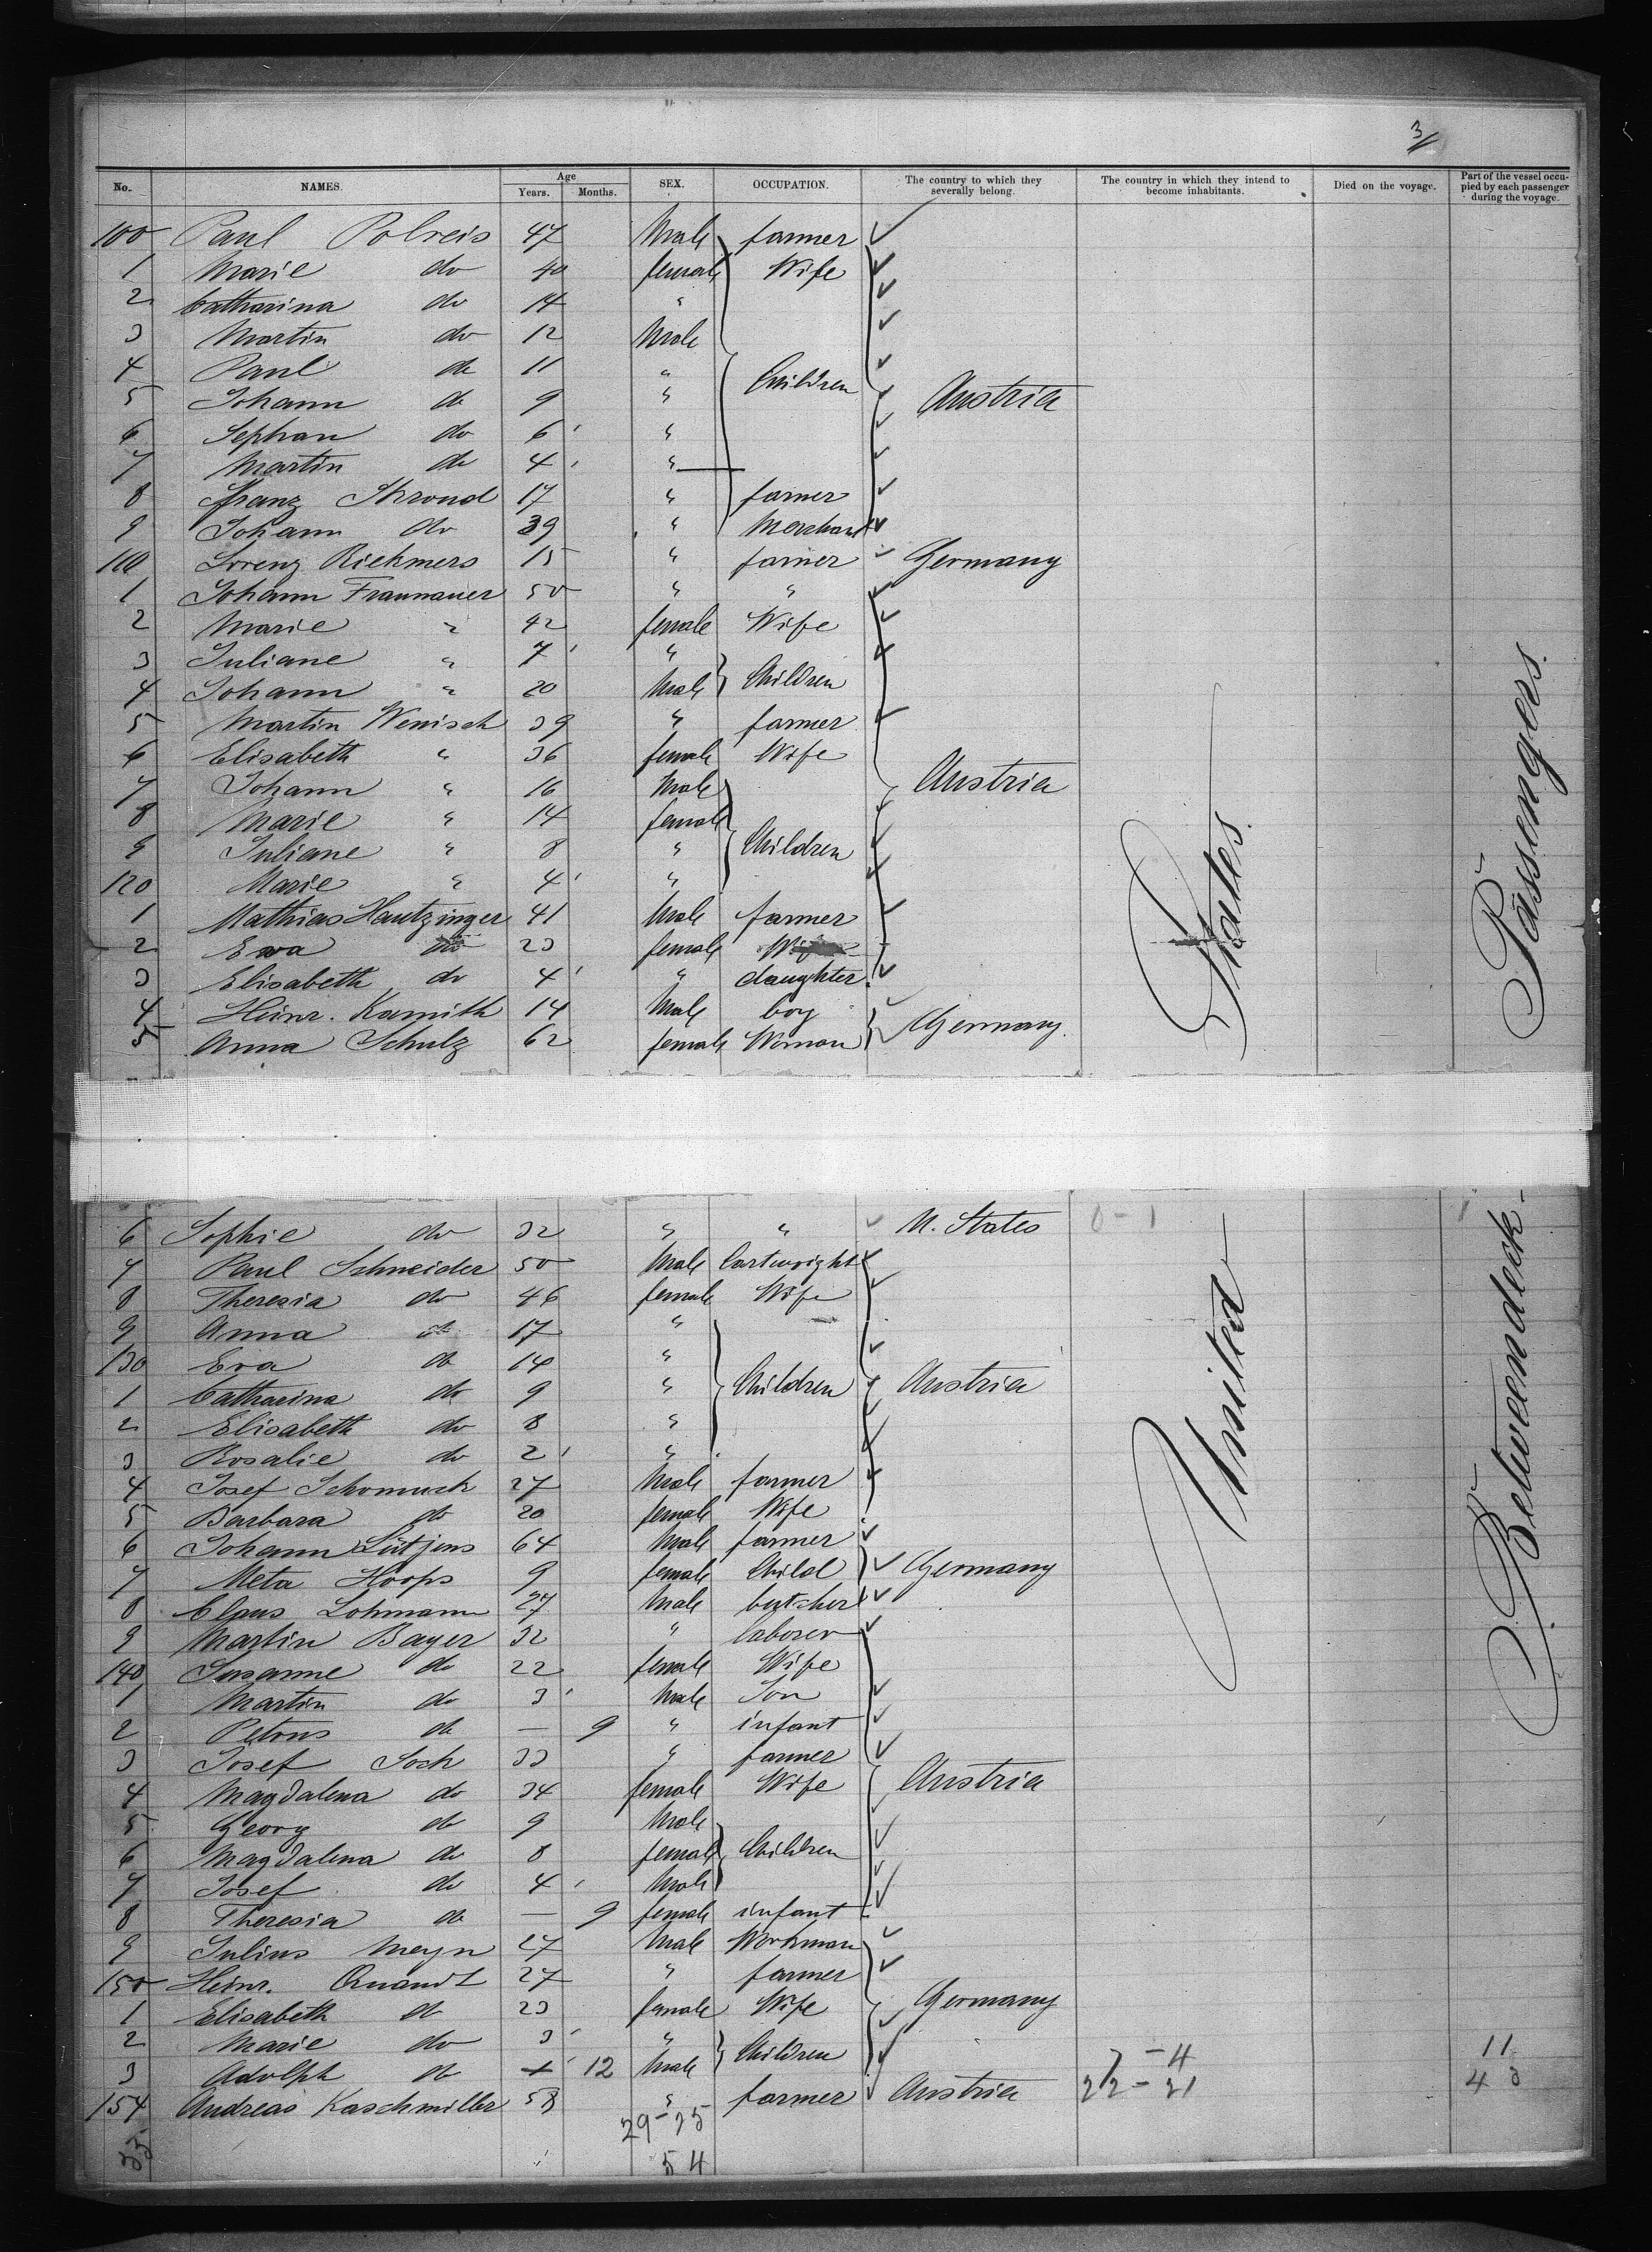 3/
No. NAMES. Age Years. Months. SEX. OCCUPATION. The country to which they severally belong. The country in which they intend to become inhabitants. Died on the voyage. Part of the vessel occupied by each passenger during the voyage.
100 Paul Polreis 47 Male farmer
1 Marie do 40 female Wife
2 Catharina do 14 "
3 Martin do 12 Male
4 Paul do 11 " Children
5 Johann do 9 " Austria
6 Sephan do 6 "
7 Martin do 4 "
8 Franz Shroud 17 " farmer
9 Johann do 39 " Merchant
110 Lorenz Riekmers 15 " farmer Germany
1 Johann Fraunauer 50 " "
2 Marie " 42 female Wife
3 Juliane " 7 "
4 Johann " 20 Male Children
5 Martin Wenisch 39 " farmer
6 Elisabeth " 36 female Wife
7 Johann " 16 Male Austria
8 Marie " 14 female
9 Juliane " 8 " Children
120 Marie " 4 "
1 Mathias Hautzinger 41 Male farmer
2 Eva do 23 female Wife
3 Elisabeth do 4 " daughter
4 Heinr. Kamith 14 Male boy
5 Anna Schulz 62 female Woman Germany.
6 Sophie do 32 " " U. States 0-1
7 Paul Schneider 50 Male Cartwright
8 Theresia do 46 female Wife
9 Anna do 17 "
130 Eva do 14 "
1 Catharina do 9 " Children Austria
2 Elisabeth do 8 "
3 Rosalie do 2 "
4 Josef Schomuck 27 Male farmer
5 Barbara do 20 female Wife
6 Johann Lütjens 64 Male farmer
7 Meta Hoops 9 female Child Germany
8 Claus Lohmann 27 Male butcher
9 Martin Bayer 32 " laborer
140 Susanne do 22 female Wife
1 Martin do 3 Male Son
2 Petrus do — 9 " infant
3 Josef Soch 33 " farmer
4 Magdalena do 34 female Wife Austria
5 Georg do 9 Male
6 Magdalena do 8 female Children
7 Josef do 4 Male
8 Theresia do — 9 female infant
9 Julius Meyn 27 Male Workman
150 Heinr. Quandt 27 " farmer
1 Elisabeth do 23 female Wife Germany
2 Marie do 3 " Children
3 Adolph do 12 Male 7-4 11
154 Andreas Kaschmiller 58 " farmer Austria 22-21 43
29-25
55 54
United States
Betweendeck Passengers.